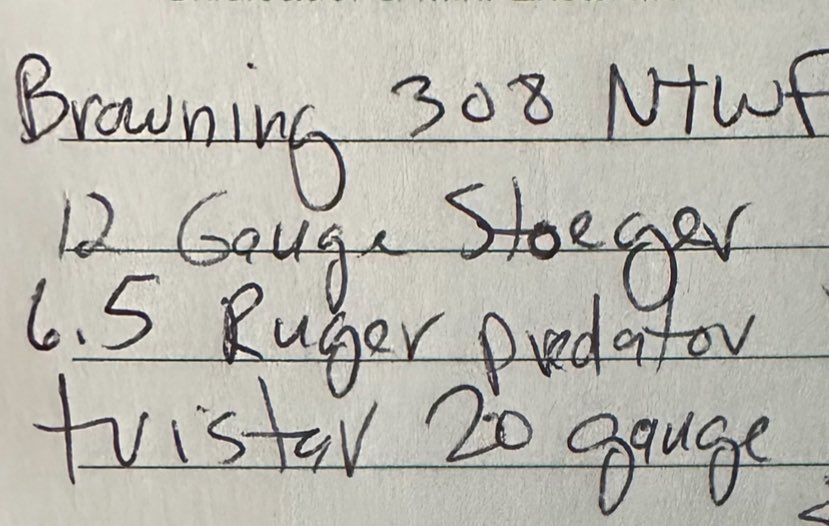 Browning 308 NTWF
12 Gauge Stoeger
6.5 Ruger predator
tristar 20 gauge